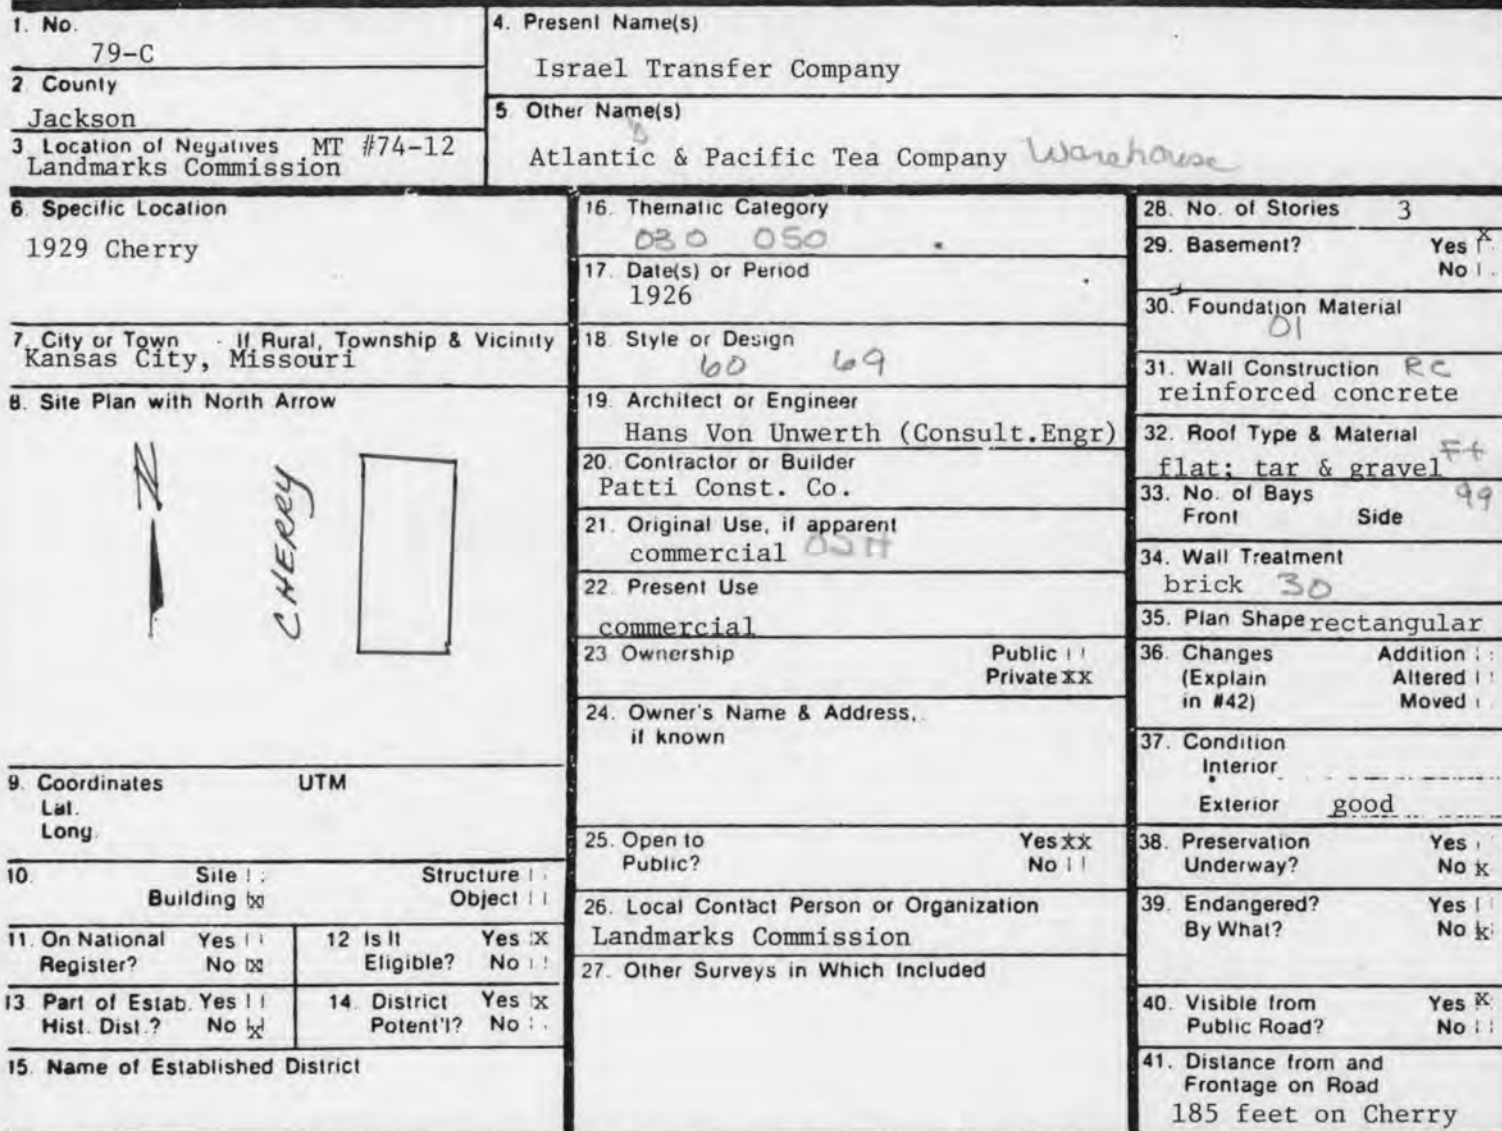 1. No.
79-C
2 County
Jackson
3 Location of Negatives MT #74-12
Landmarks Commission
4. Present Name(s)
Israel Transfer Company
5 Other Name(s)
Atlantic & Pacific Tea Company Warehouse
6. Specific Location
1929 Cherry
7. City or Town If Rural, Township & Vicinity
Kansas City, Missouri
8. Site Plan with North Arrow
N
CHERRY
9. Coordinates UTM
Lat.
Long.
10. Site Structure
Building [X] Object
11. On National Yes
Register? No [X]
12 Is It Yes X
Eligible? No
13. Part of Estab. Yes
Hist. Dist.? No X
14. District Yes X
Potent'l? No
15. Name of Established District
16. Thematic Category
030 050
17. Date(s) or Period
1926
18. Style or Design
60 69
19. Architect or Engineer
Hans Von Unwerth (Consult.Engr)
20. Contractor or Builder
Patti Const. Co.
21. Original Use, if apparent
commercial
22. Present Use
commercial
23 Ownership Public
Private XX
24. Owner's Name & Address,
if known
25. Open to Yes XX
Public? No
26. Local Contact Person or Organization
Landmarks Commission
27. Other Surveys in Which Included
28. No. of Stories 3
29. Basement? Yes X
No
30. Foundation Material
01
31. Wall Construction RC
reinforced concrete
32. Roof Type & Material Ft
flat; tar & gravel
33. No. of Bays 99
Front Side
34. Wall Treatment
brick 30
35. Plan Shape rectangular
36. Changes Addition
(Explain Altered
in #42) Moved
37. Condition
Interior
Exterior good
38. Preservation Yes
Underway? No X
39. Endangered? Yes
By What? No X
40. Visible from Yes X
Public Road? No
41. Distance from and
Frontage on Road
185 feet on Cherry